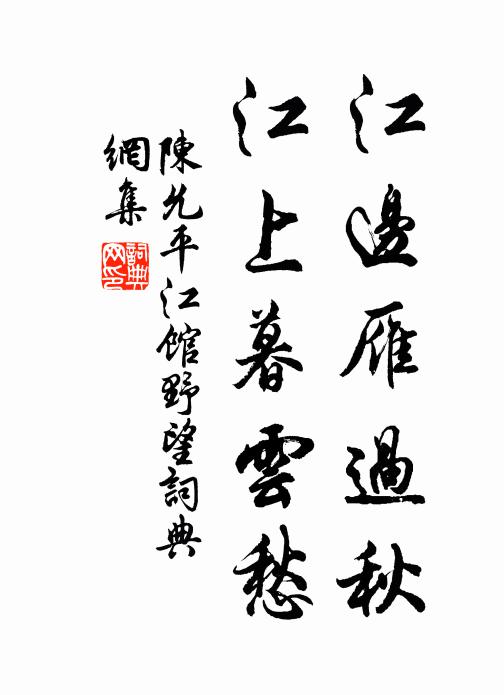 江邊雁過秋
江上暮雲愁
陳允平江館野望詞典
網集
詞典
网印